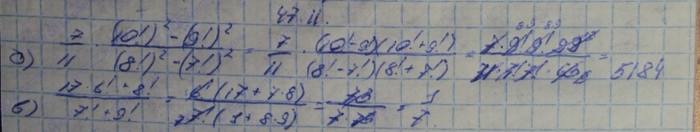 47.11.
а) 7/11 · ((10!)² - (9!)²)/((8!)² - (7!)²) = 7/11 · (10! - 9!)(10! + 9!)/((8! - 7!)(8! + 7!)) = = 5184
б) (17 · 6! + 8!)/(7! + 9!) = 6! (17 + 7 · 8)/(7! (1 + 8 · 9)) = 73/(7 · 73) = 1/7